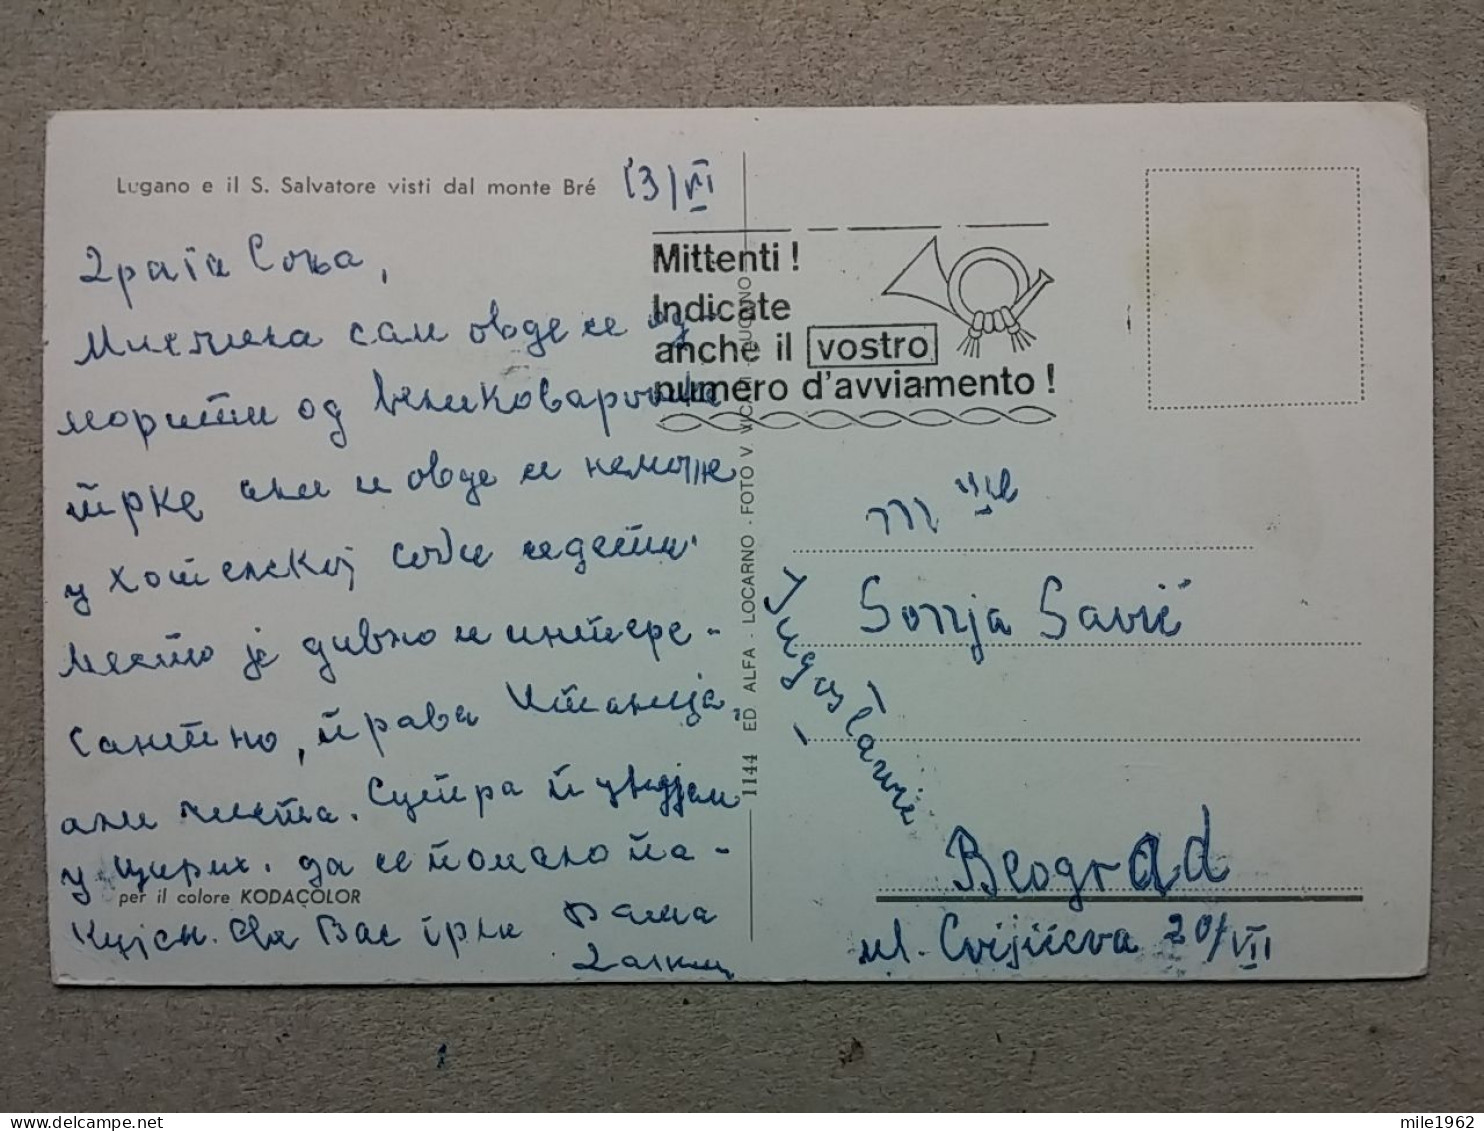 Lugano e il S. Salvatore visti dal monte Bré
13/VI
Драга Соња,
Мислила сам овде се од-
морити од великоварошке
трке али и овде се неможе
у хотелској соби седети.
Место је дивно и интере-
сантно, права Италија,
али чиста. Сутра путујем
у Цирих. да се помало па-
кујем. Све Вас грли
per il colore KODACOLOR
1144 ED ALFA - LOCARNO - FOTO V. LUGANO
Mittenti !
Indicate
anche il vostro
numero d'avviamento !
Mlle
Sonja Savić
Jugoslavie
Beograd
ul. Cvijićeva 20/VII
mile1962